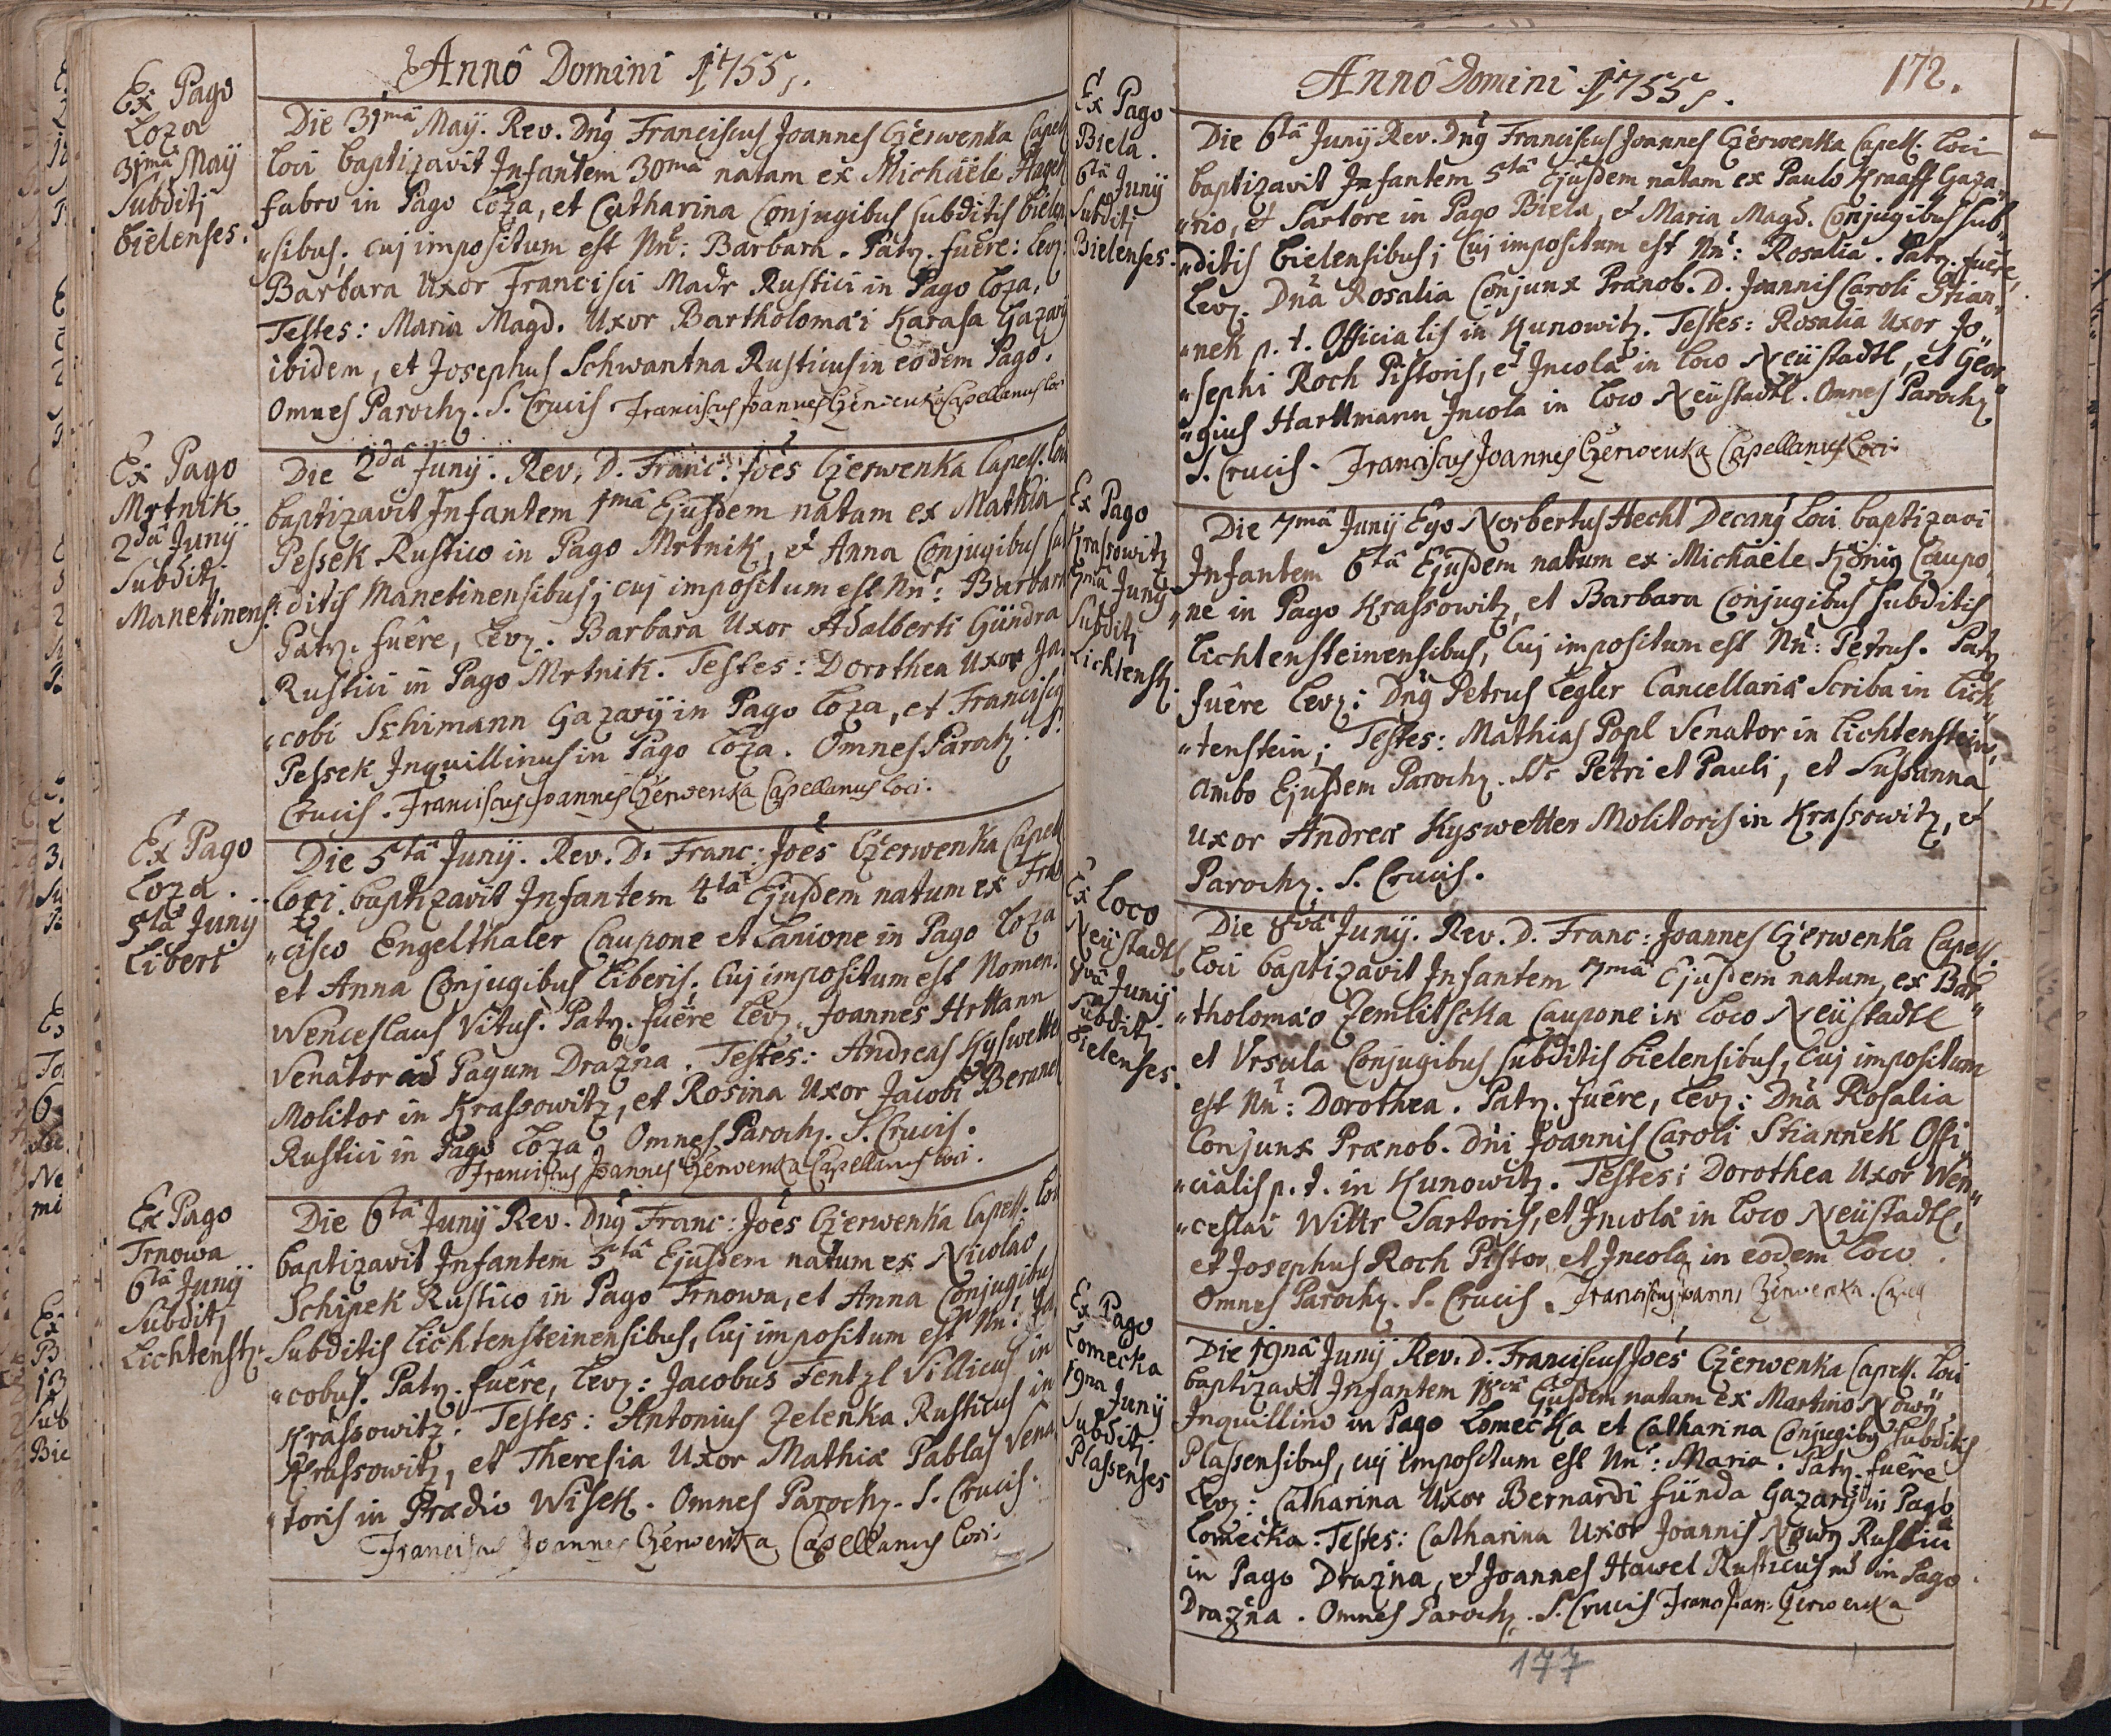 Annô Domini 1755.
Ex Pago
Loza
31mâ Maÿ
Subditj
bielenses.
Die 31mâ Maÿ. Rev. Dnġ Franciscus Joannes Czerwenka Capell
Loci baptizavit Infantem 30mâ natam ex Michäële
fabro in Pago Loza, et Catharina Conjugibus subditis bielen
"sibus; cuj impositum est Nn̄: Barbara. Patr. fuêre: Lev:
Barbara Uxor Francisci Madr Rustici in Pago Loza,
Testes: Maria Magd. Uxor Bartholomæi Karasa Gazarÿ
ibidem, et Josephus Schwantna Rusticus in eodem Pago.
Omnes Paroch. S. Crucis. Franciscus Joannes Czerwenka Capellanus Loci
Ex Pago
Mrtnik
2dâ Junÿ
Subditj
Manetinens:
Die 2dâ Junÿ. Rev. D. Franc: Joês Czerwenka Capell. Loci
baptizavit Infantem 1mâ Ejusdem natam ex Mathia
Pessek Rustico in Pago Mrtnik, et Anna Conjugibus sub
ditis Manetinensibus; cuj impositum est Nn̄: Barbara
Patr. fuêre, Lev. Barbara Uxor Adalberti Gündra
Rustici in Pago Mrtnik. Testes: Dorothea Uxor Ja
"cobi Schimann Gazarÿ in Pago Loza, et Franciscġ
Pessek Inquillinus in Pago Loza. Omnes Paroch. S.
Crucis. Franciscus Joannes Czerwenka Capellanus Loci.
Ex Pago
Loza.
5tâ Junÿ
Libert
Die 5tâ Junÿ. Rev. D. Franc: Joês Czerwenka Capell
Loci baptizavit Infantem 4tâ Ejusdem natum ex Fran
"cisco Engelthaler Caupone et Lanione in Pago Loza
et Anna Conjugibus Liberis. Cuj impositum est Nomen.
Wenceslaus Vitus. Patr. fuêre Lev. Joannes Hrttann
Senator ad Pagum Drazna. Testes: Andreas Kyswetter
Molitor in Krassowitz, et Rosina Uxor Jacobi Beranek
Rustici in Pago Loza. Omnes Paroch. S. Crucis.
Franciscus Joannes Czerwenka Capellanus Loci.
Ex Pago
Trnowa
6tâ Junÿ
Subditj
Lichtenstz.
Die 6tâ Junÿ Rev. Dnġ Franc: Joês Czerwenka Capell. Loci
baptizavit Infantem 5tâ Ejusdem natum ex Nicolao
Schipek Rustico in Pago Trnowa, et Anna Conjugibus
Subditis Lichtensteinensibus, Cuj impositum est Nn̄: Ja
"cobus. Patr. fuêre, Lev: Jacobus Fentzl Villicus in
Krassowitz. Testes: Antonius Zelenka Rusticus in
Krassowitz, et Theresia Uxor Mathiæ Pablas Sena
"toris in Prædio Wisek. Omnes Paroch. S. Crucis.
Franciscus Joannes Czerwenka Capellanus Loci.
Annô Domini 1755.
172.
Ex Pago
Biela.
6tâ Junÿ
Subditj
Bielenses.
Die 6tâ Junÿ Rev. Dnġ Franciscus Joannes Czerwenka Capell. Loci
baptizavit Infantem 5tâ Ejusdem natam ex Paulo Kraaff Gaza
"rio, et Sartore in Pago Biela, et Maria Magd. Conjugibus sub"
"ditis bielensibus; Cuj impositum est Nn̄: Rosalia. Patr. fuêre,
Lev. Dnâ Rosalia Conjunx Prænob. D. Joannis Caroli Stian"
"nek p. t. Officialis in Kunowitz. Testes: Rosalia Uxor Jo"
"sephi Roch Pistoris, et Incolæ in Loco Neüstadtl, et Geor"
"gius Harttmann Incola in Loco Neüstadtl. Omnes Paroch
S. Crucis. Franciscus Joannes Czerwenka Capellanus Loci.
Ex Pago
Krassowitz
7mâ Junÿ
Subditj
Lichtenstz.
Die 7mâ Junÿ Ego Norbertus Hecht Decanġ Loci baptizavi
Infantem 6tâ Ejusdem natum ex Michäële König Caupo
"ne in Pago Krassowitz, et Barbara Conjugibus Subditis
Lichtensteinensibus, Cuj impositum est Nn̄: Petrus. Patr
fuêre Lev: Dnġ Petrus Legler Cancellariæ Scriba in Lich"
"tenstein; Testes: Mathias Popl Senator in Lichtenstein,
ambo Ejusdem Paroch. SS. Petri et Pauli, et Sussanna
Uxor Andreæ Kyswetter Molitoris in Krassowitz, et
Paroch. S. Crucis.
Ex Loco
Neüstadtl
8vâ Junÿ
Subditj
bielenses.
Die 8vâ Junÿ. Rev. D. Franc: Joannes Czerwenka Capell.
Loci baptizavit Infantem 7mâ Ejusdem natam, ex Bar"
"tholomæo Zemlitschka Caupone in Loco Neüstadtl
et Vrsula Conjugibus subditis bielensibus, Cuj impositum
est Nn̄: Dorothea. Patr. fuêre, Lev: Dnâ Rosalia
Conjunx Prænob. Dni Joannis Caroli Stiannek Offi
"cialis p. t. in Kunowitz. Testes: Dorothea Uxor Wen"
"ceslai Wittr Sartoris, et Incolæ in Loco Neüstadtl,
et Josephus Roch Pistor et Incola in eodem Loco.
Omnes Paroch. S. Crucis. Franciscus Joannes Czerwenka.
Ex Pago
Lomecka
19na Junÿ
Subditj
Plassenses
Die 19nâ Junÿ Rev. D. Franciscus Joês Czerwenka Capell. Loci
baptizavit Infantem 18vâ Ejusdem natam ex Martino Nowÿ
Inquillino in Pago Lomečka et Catharina Conjugibġ Subditis
Plassensibus, cuj impositum est Nn̄: Maria. Patr. fuêre
Lev: Catharina Uxor Bernardi Fünda Gazarÿ in Pago
Lomečka. Testes: Catharina Uxor Joannis Nowy Rustici
in Pago Drazna, et Joannes Hawel Rusticus in Pago
Drazna. Omnes Paroch. S. Crucis Franc Joan: Czerwenka
177